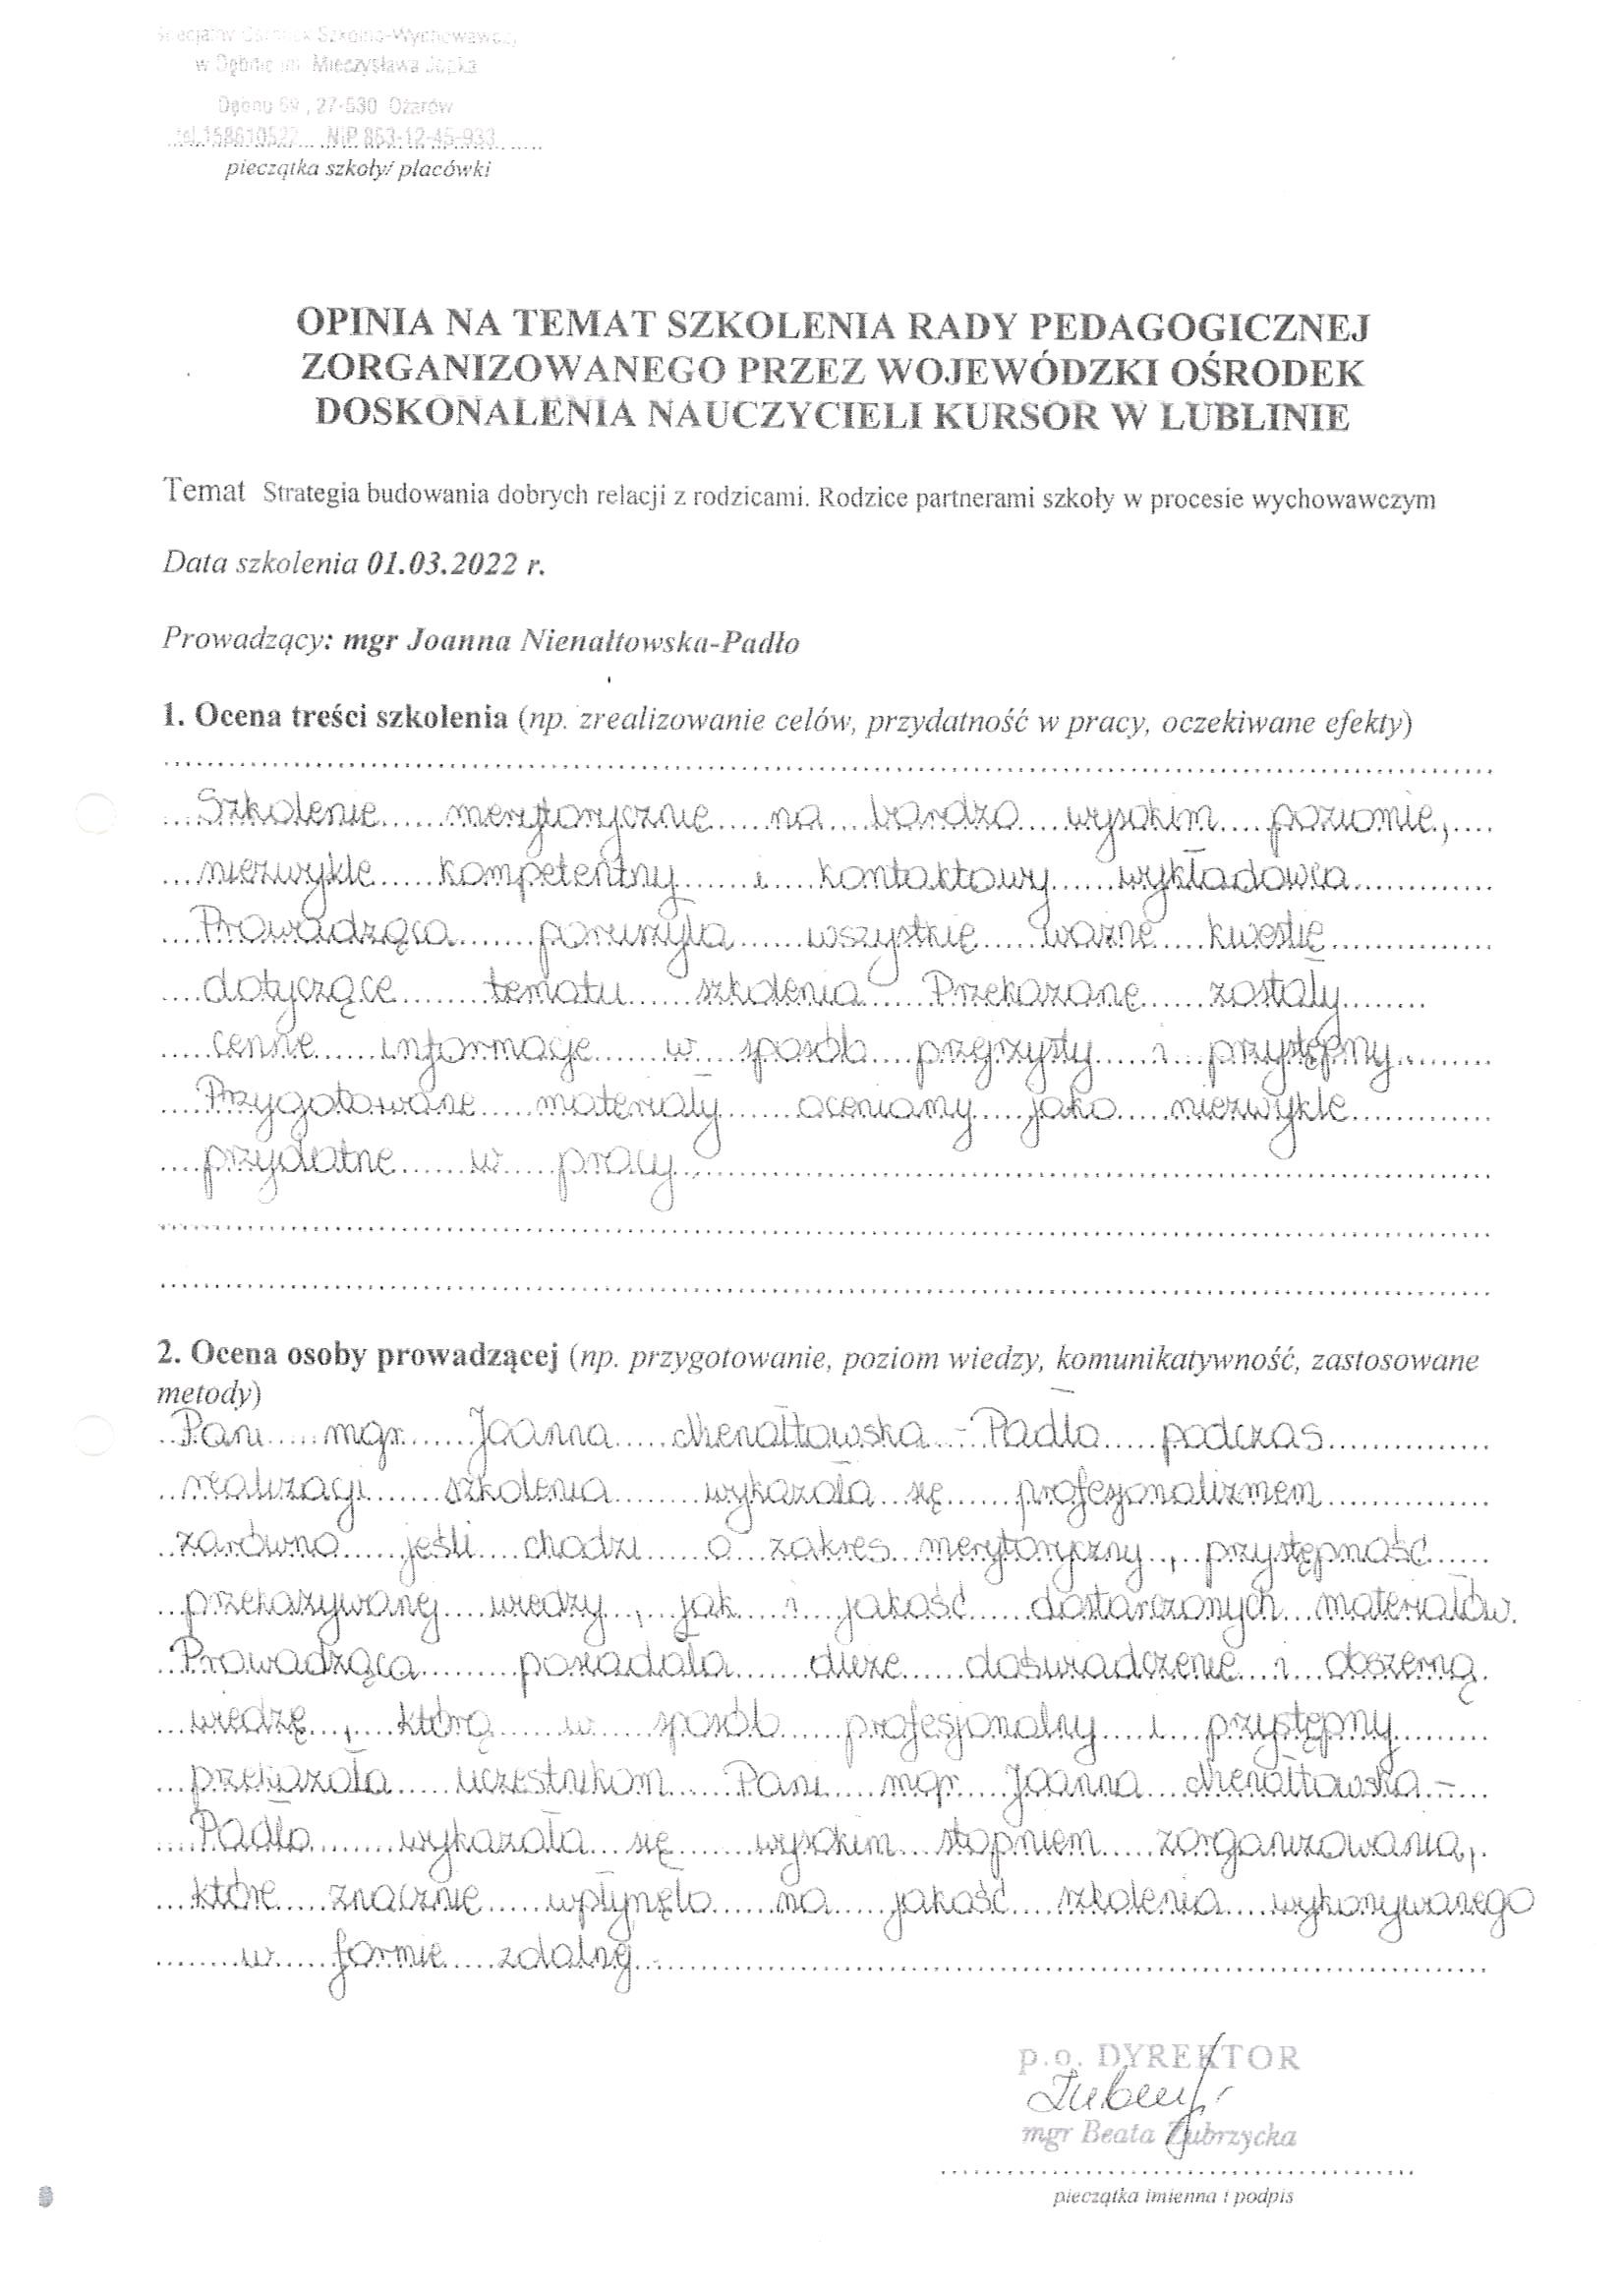 Specjalny Ośrodek Szkolno-Wychowawczy
w Dębnie im. Mieczysława
Dębno 69, 27-530 Ożarów
tel.158610527 NIP 863-12-45-933
pieczątka szkoły/ placówki
OPINIA NA TEMAT SZKOLENIA RADY PEDAGOGICZNEJ
ZORGANIZOWANEGO PRZEZ WOJEWÓDZKI OŚRODEK
DOSKONALENIA NAUCZYCIELI KURSOR W LUBLINIE
Temat Strategia budowania dobrych relacji z rodzicami. Rodzice partnerami szkoły w procesie wychowawczym
Data szkolenia 01.03.2022 r.
Prowadzący: mgr Joanna Nienałtowska-Padło
1. Ocena treści szkolenia (np. zrealizowanie celów, przydatność w pracy, oczekiwane efekty)
Szkolenie merytorycznie na bardzo wysokim poziomie,
niezwykle kompetentny i kontaktowy wykładowca.
Prowadząca poruszyła wszystkie ważne kwestie
dotyczące tematu szkolenia. Przekazane zostały
cenne informacje w sposób przejrzysty i przystępny.
Przygotowane materiały oceniamy jako niezwykle
przydatne w pracy.
2. Ocena osoby prowadzącej (np. przygotowanie, poziom wiedzy, komunikatywność, zastosowane
metody)
Pani mgr Joanna Nienałtowska - Padło podczas
realizacji szkolenia wykazała się profesjonalizmem
zarówno jeśli chodzi o zakres merytoryczny, przystępność
przekazywanej wiedzy, jak i jakość dostarczonych materiałów.
Prowadząca posiadała duże doświadczenie i obszerną
wiedzę, którą w sposób profesjonalny i przystępny
przekazała uczestnikom. Pani mgr Joanna Nienałtowska -
Padło wykazała się wysokim stopniem zorganizowania,
które znacznie wpłynęło na jakość szkolenia wykonywanego
w formie zdalnej.
p.o. DYREKTOR
mgr Beata Zubrzycka
pieczątka imienna i podpis